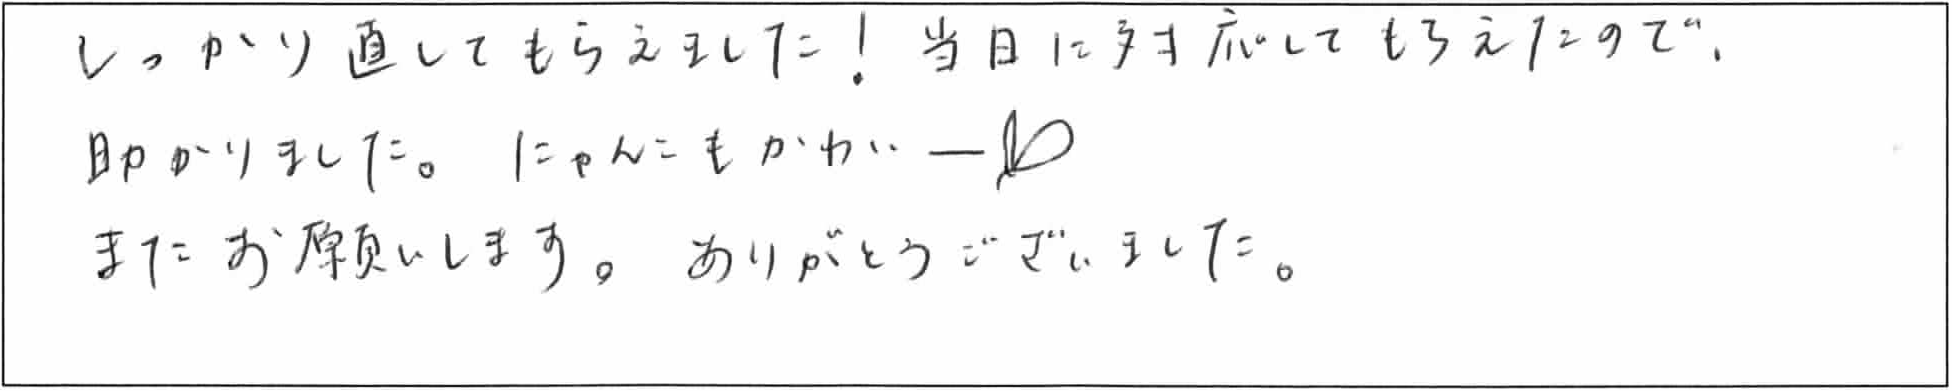 しっかり直してもらえました！当日に対応してもらえたので、
助かりました。にゃんこもかわいー♡
またお願いします。ありがとうございました。